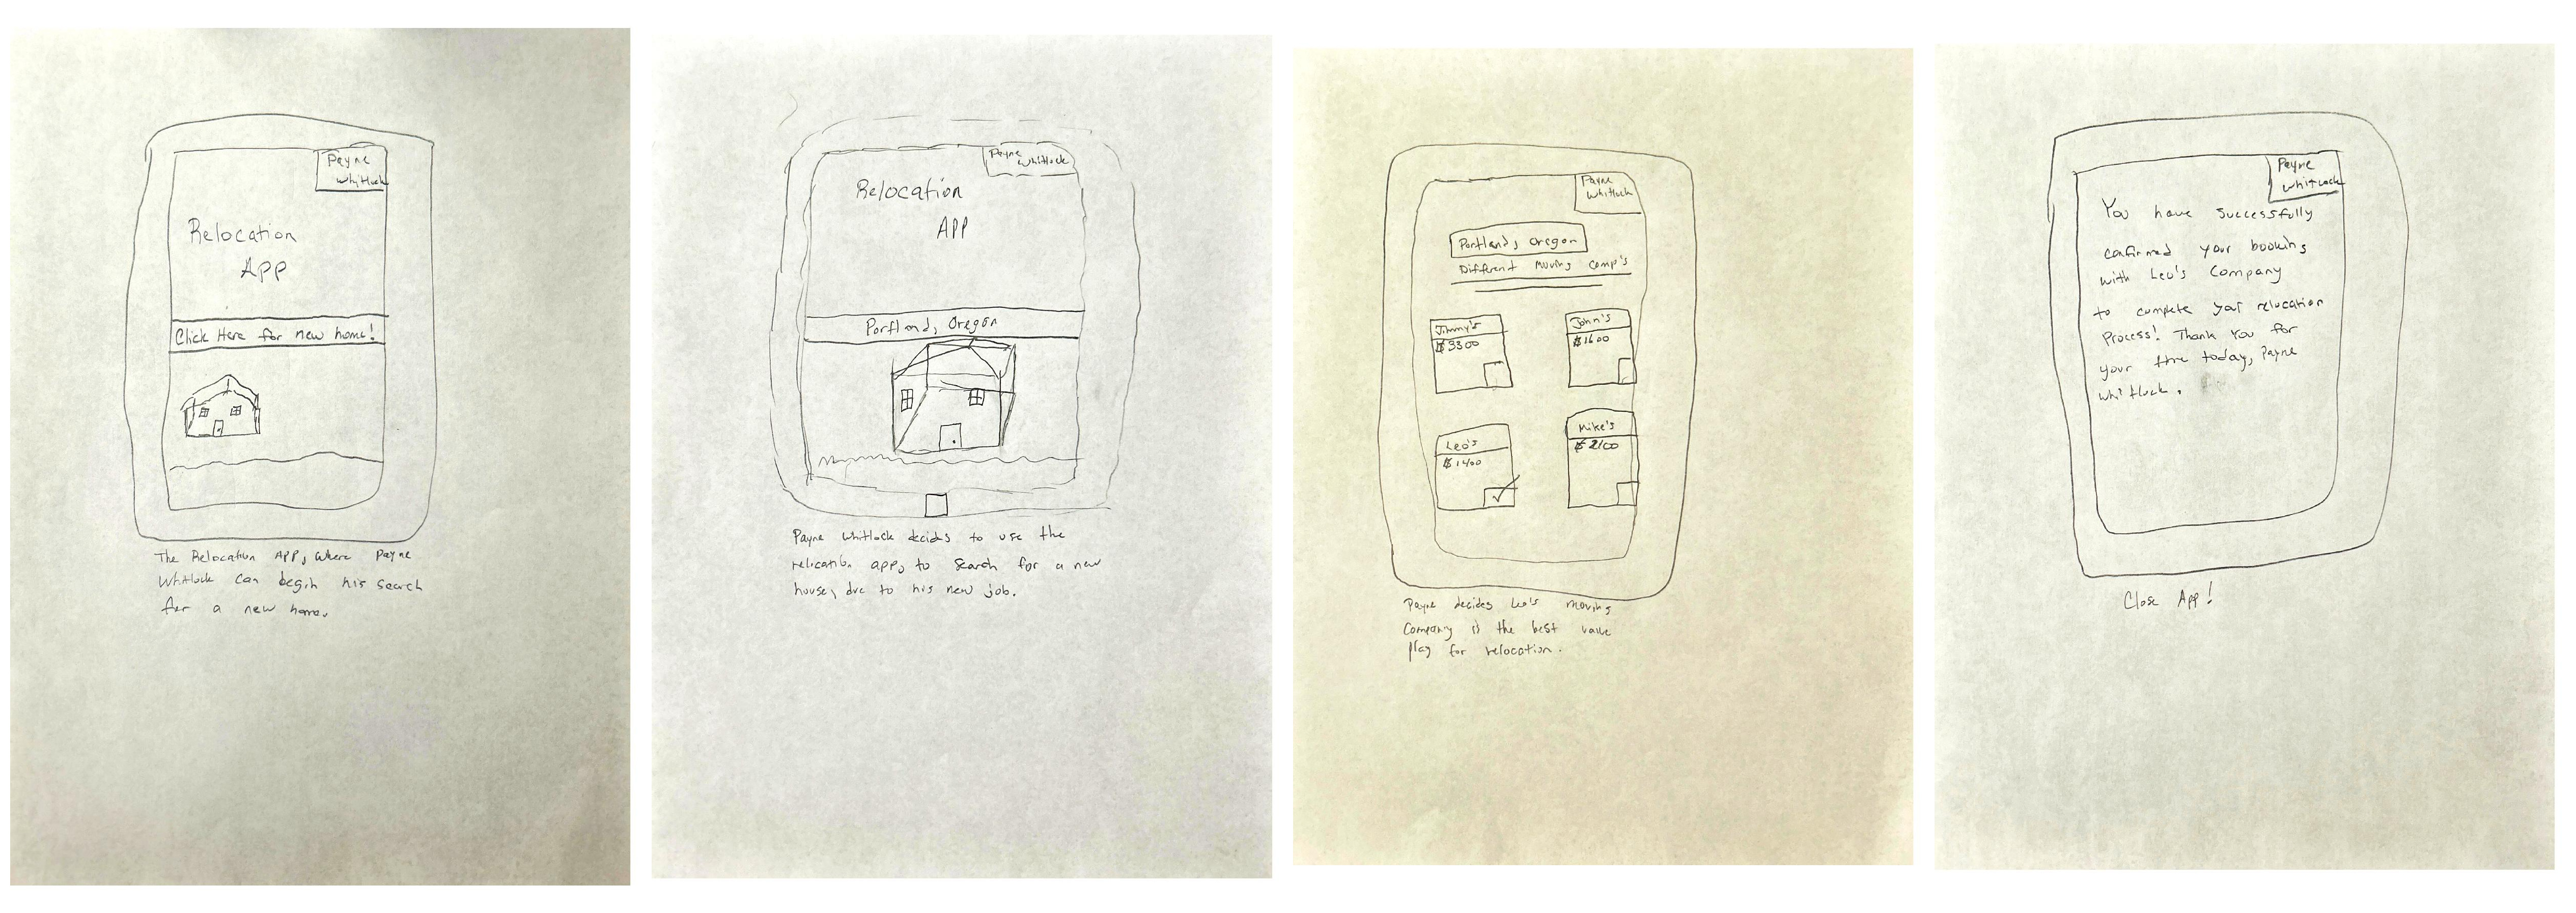 Payne
Whitlock
Relocation
App
Click Here for new home!
The Relocation APP, Where Payne
Whitlock can begin his search
for a new home.
Payne
Whitlock
Relocation
APP
Portland, Oregon
Payne Whitlock decids to use the
relication app, to search for a new
house, due to his new job.
Payne
Whitlock
Portland, Oregon
Different Moving Comp's
Jimmy's
$3300
John's
$1600
Leo's
$1400
Mike's
$2100
Payne decides Leo's moving
Company is the best value
play for relocation.
Payne
Whitlock
You have successfully
confirmed your booking
with Leo's Company
to complete your relocation
Process! Thank You for
your time today, Payne
Whitlock.
Close App!